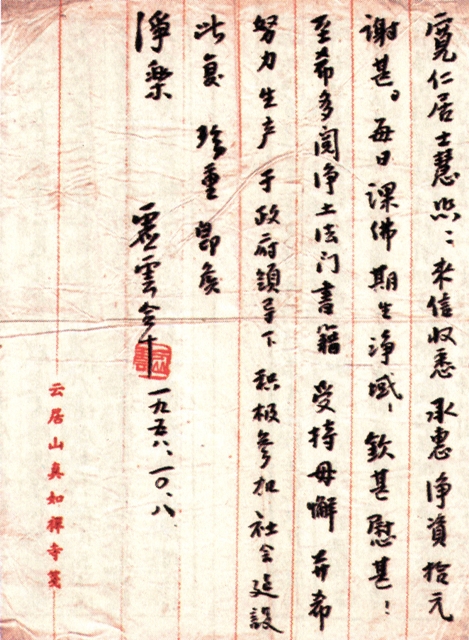 寬仁居士慧照：来信收悉 承惠 淨资拾元
谢甚。每日课佛期生淨域，钦甚慰甚！
至希多阅淨土法门書籍 受持毋懈 并希
努力生产 于政府领导下 积极参加社会建设
此复 珍重 即候
淨樂
虛雲合十 一九五八、一〇、八
云居山真如禪寺箋